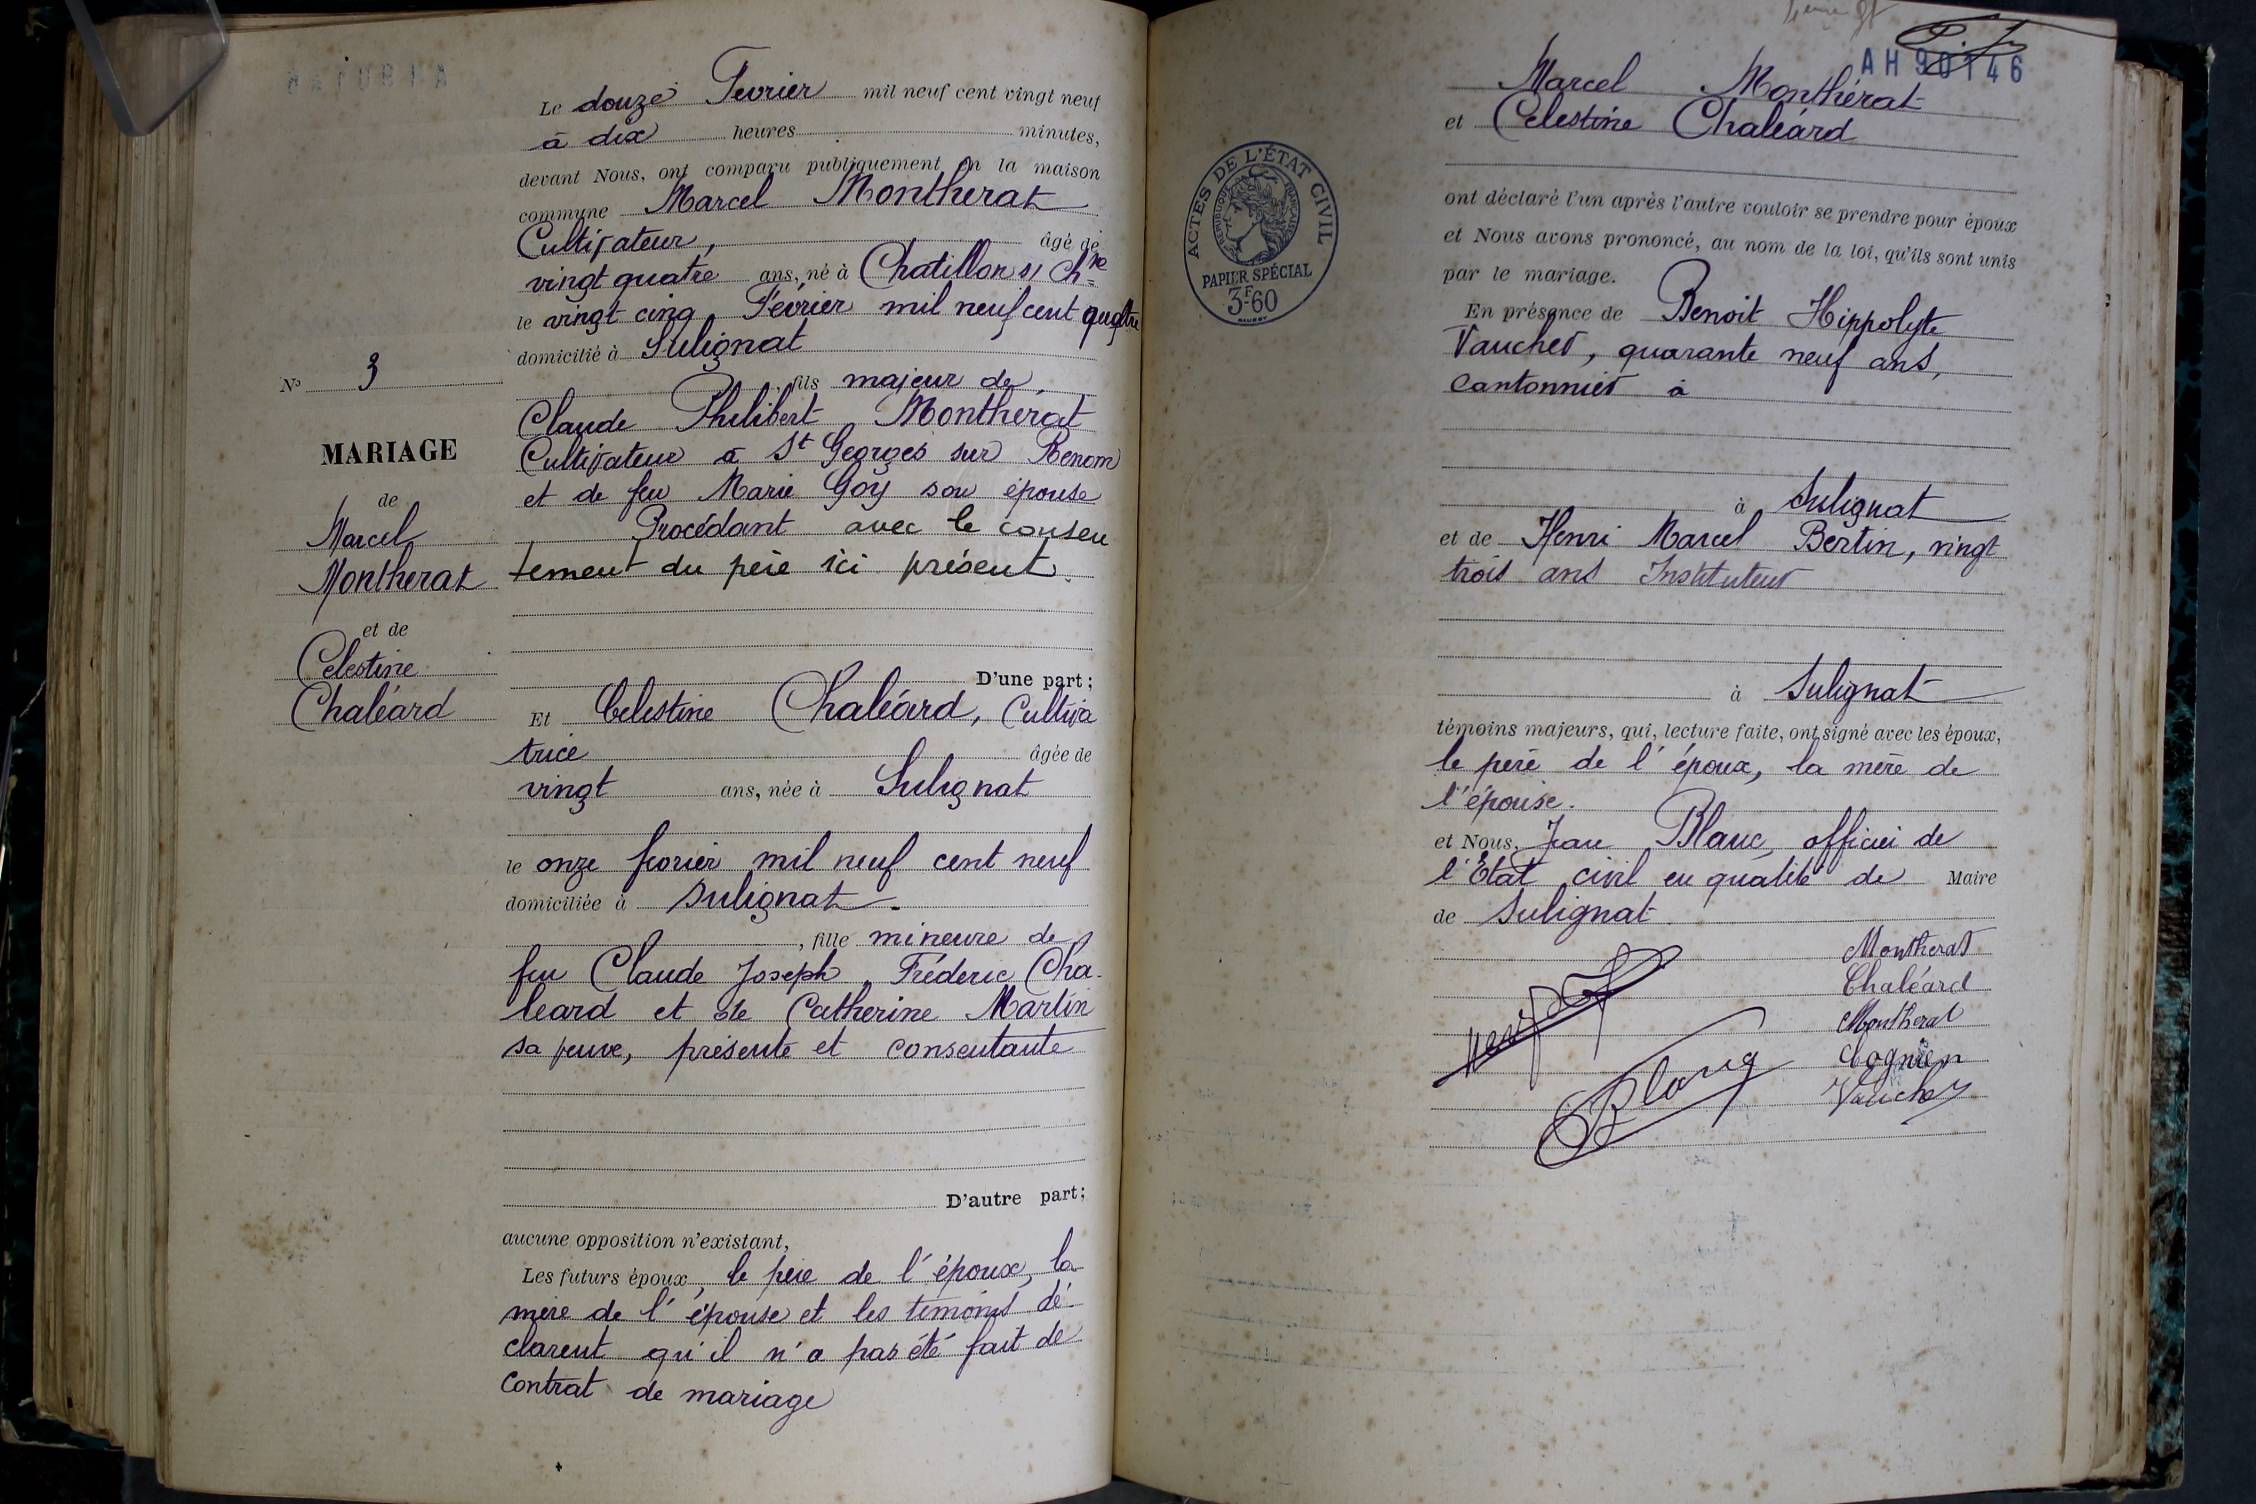 Le douze Fevrier mil neuf cent vingt neuf
à dix heures minutes,
devant Nous, ont comparu publiquement en la maison
commune Marcel Montherat
Cultivateur, âgé de
vingt quatre ans, né à Chatillon s/ Ch^ne
le vingt cinq Février mil neuf cent quatre
domicilié à Sulignat
, fils majeur de
Claude Philibert Montherat
Cultivateur à S^t Georges sur Renom
et de feu Marie Goy son épouse
Procédant avec le consen
tement du père ici présent
D'une part ;
Et Celestine Chaléard, Cultiva
trice âgée de
vingt ans, née à Sulignat
le onze fevrier mil neuf cent neuf
domiciliée à Sulignat
, fille mineure de
feu Claude Joseph Fréderic Cha-
leard et de Catherine Martin
sa veuve, présente et consentante
D'autre part ;
aucune opposition n'existant,
Les futurs époux, le père de l'époux, la
mère de l'épouse et les témoins dé-
clarent qu'il n'a pas été fait de
contrat de mariage
N° 3
MARIAGE
de
Marcel
Montherat
et de
Celestine
Chaléard
AH 90146
Marcel Monthérat
et Celestine Chaléard
ont déclaré l'un après l'autre vouloir se prendre pour époux
et Nous avons prononcé, au nom de la loi, qu'ils sont unis
par le mariage.
En présence de Benoit Hippolyte
Vaucher, quarante neuf ans,
cantonnier à
à Sulignat
et de Henri Marcel Bertin, vingt
trois ans Instituteur
à Sulignat
témoins majeurs, qui, lecture faite, ont signé avec les époux,
le père de l'époux, la mère de
l'épouse.
et Nous, Jean Blanc, officier de
l'Etat civil en qualité de Maire
de Sulignat
Montherat
Chaléard
Montherat
Cognien
Vaucher
Blanc
ACTES DE L'ÉTAT CIVIL
RÉPUBLIQUE FRANÇAISE
PAPIER SPÉCIAL
3F60